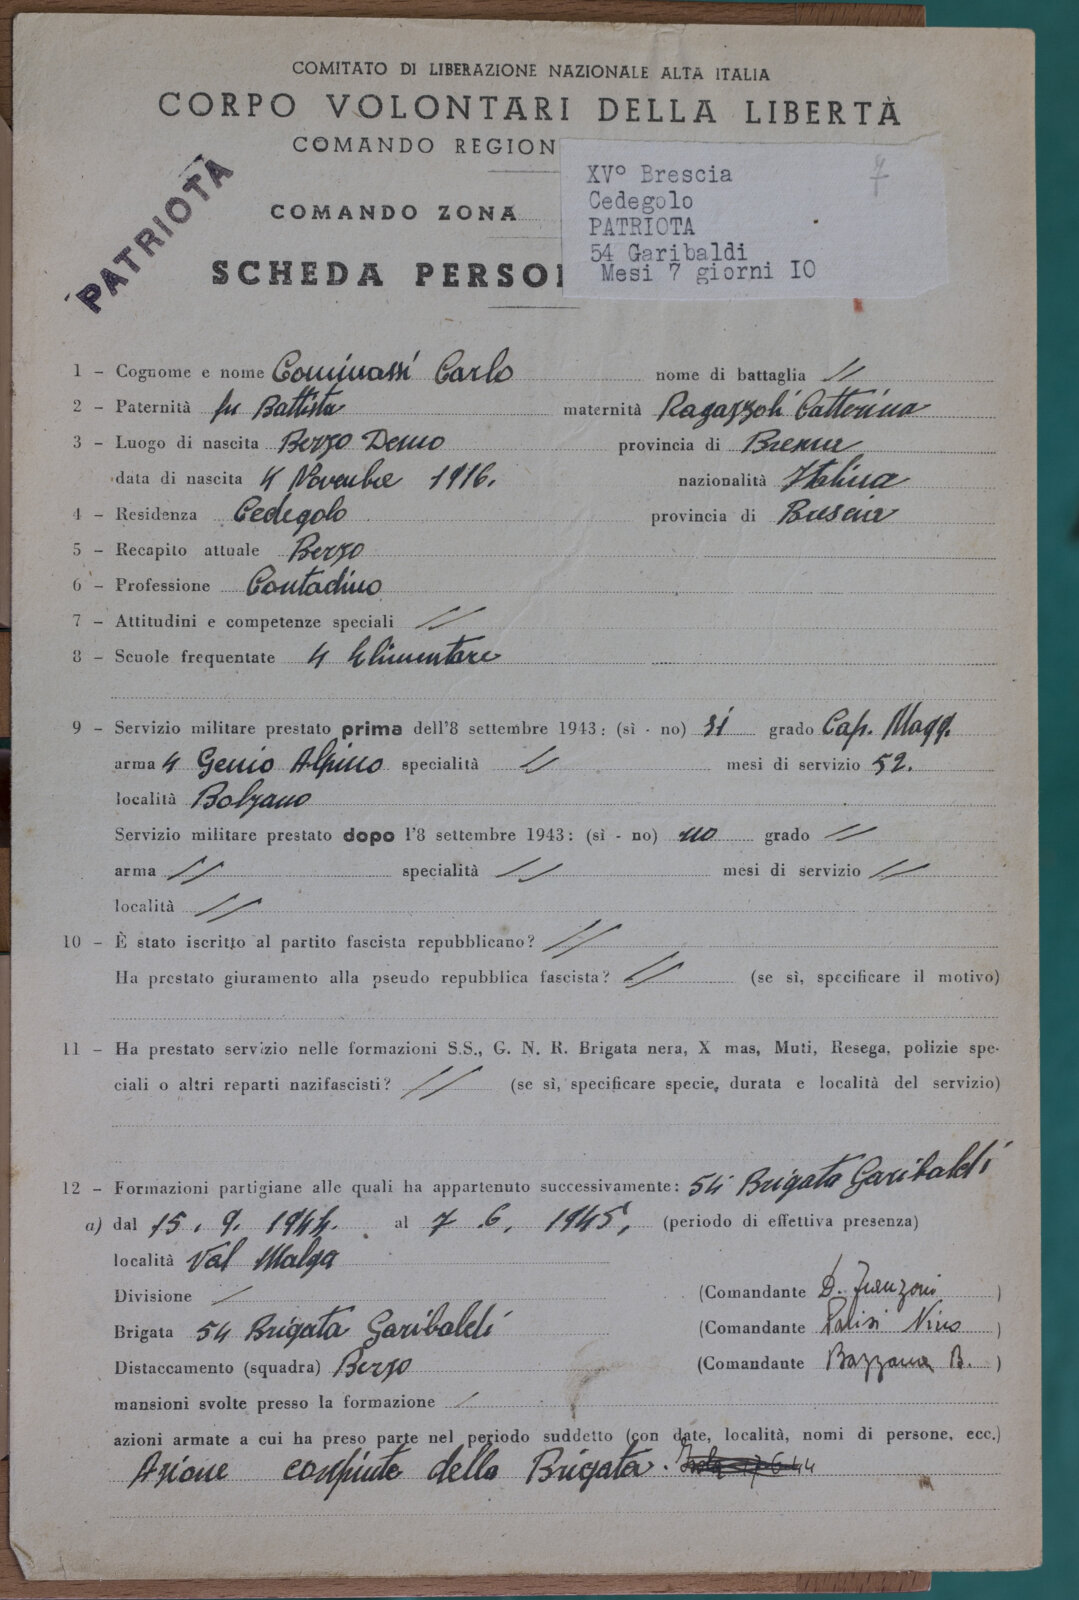 COMITATO DI LIBERAZIONE NAZIONALE ALTA ITALIA
CORPO VOLONTARI DELLA LIBERTÀ
COMANDO REGION
XV° Brescia
Cedegolo
PATRIOTA
54 Garibaldi
Mesi 7 giorni IO
7
PATRIOTA
COMANDO ZONA
SCHEDA PERSO
1 - Cognome e nome Cominassi Carlo nome di battaglia //
2 - Paternità fu Battista maternità Ragazzoli Catterina
3 - Luogo di nascita Berzo Demo provincia di Brescia
data di nascita 4 Novembre 1916. nazionalità Italiana
4 - Residenza Cedegolo provincia di Brescia
5 - Recapito attuale Berzo
6 - Professione Contadino
7 - Attitudini e competenze speciali //
8 - Scuole frequentate 4 Elimentare
9 - Servizio militare prestato prima dell'8 settembre 1943: (sì - no) si grado Cap. Magg.
arma 4 Genio Alpino specialità // mesi di servizio 52.
località Bolzano
Servizio militare prestato dopo l'8 settembre 1943: (sì - no) no grado //
arma // specialità // mesi di servizio //
località //
10 - È stato iscritto al partito fascista repubblicano? //
Ha prestato giuramento alla pseudo repubblica fascista? // (se sì, specificare il motivo)
11 - Ha prestato servizio nelle formazioni S.S., G. N. R. Brigata nera, X mas, Muti, Resega, polizie spe-
ciali o altri reparti nazifascisti? // (se sì, specificare specie, durata e località del servizio)
12 - Formazioni partigiane alle quali ha appartenuto successivamente: 54 Brigata Garibaldi
a) dal 15. 9. 1944. al 7 6. 1945. (periodo di effettiva presenza)
località Val Malga
Divisione / (Comandante D. Franzoni )
Brigata 54 Brigata Garibaldi (Comandante Parisi Nino )
Distaccamento (squadra) Berzo (Comandante Bazzana B. )
mansioni svolte presso la formazione /
azioni armate a cui ha preso parte nel periodo suddetto (con date, località, nomi di persone, ecc.)
Azione compiute della Brigata.